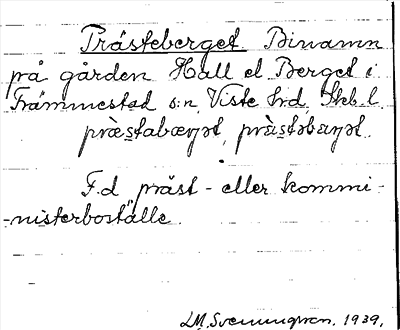 Prästeberget Binamn
på gården Hall el. Berget i
Främmestad s:n, Viste hrd, Skb. l.
præstabærjət, præ̀stəbærjət.
F.d präst- eller kommi-
-nisterboställe.
LM. Svenungsson. 1939.